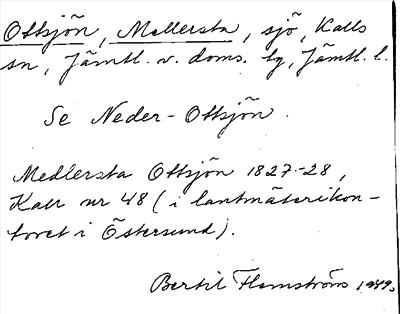 Ottsjön, Mellersta, sjö, Kalls
sn, Jämtl. v. doms. tg, Jämtl. l.
Se Neder-Ottsjön.
Medlersta Ottsjön 1827-28,
Kall nr 48 (i lantmäterikon-
toret i Östersund).
Bertil Flemström 1949.